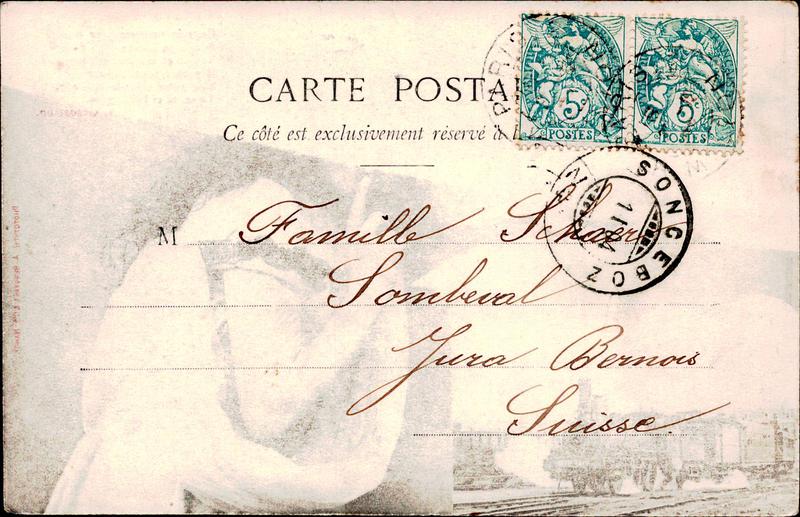 CARTE POSTA
Ce côté est exclusivement réservé à
5c 5c
POSTES POSTES
PARIS
SONCEBOZ
M Famille
Sombeval
Jura Bernois
Suisse